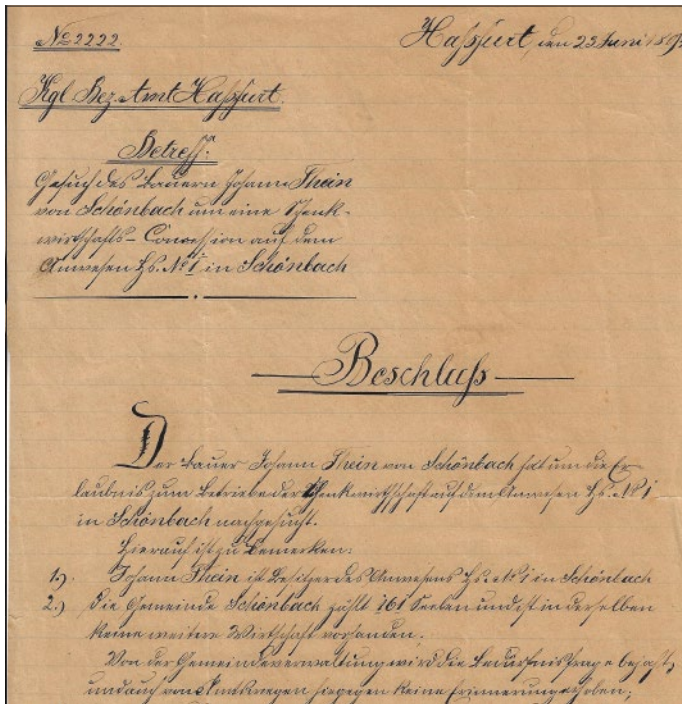 No 2222.
Haßfurt, den 23. Juni 189
Kgl. Bez.-Amt Haßfurt.
Betreff:
Gesuch des Bauern Johann Thein
von Schönbach um eine Schenk-
wirthschafts-Concession auf dem
Anwesen Hs. No 1 in Schönbach
Beschluß
Der Bauer Johann Thein von Schönbach hat um die Er
laubnis zum Betriebe der Schenkwirthschaft auf dem Anwesen Hs. No 1
in Schönbach nachgesucht.
Hierauf ist zu bemerken:
1.) Johann Thein ist Besitzer des Anwesens Hs. No 1 in Schönbach
2.) Die Gemeinde Schönbach zählt 161 Seelen und ist in derselben
keine weitere Wirthschaft vorhanden.
Von der Gemeindeverwaltung wird die Bedürfnisfrage bejaht,
und auch von Amtswegen hiegegen keine Erinnerung erhoben;